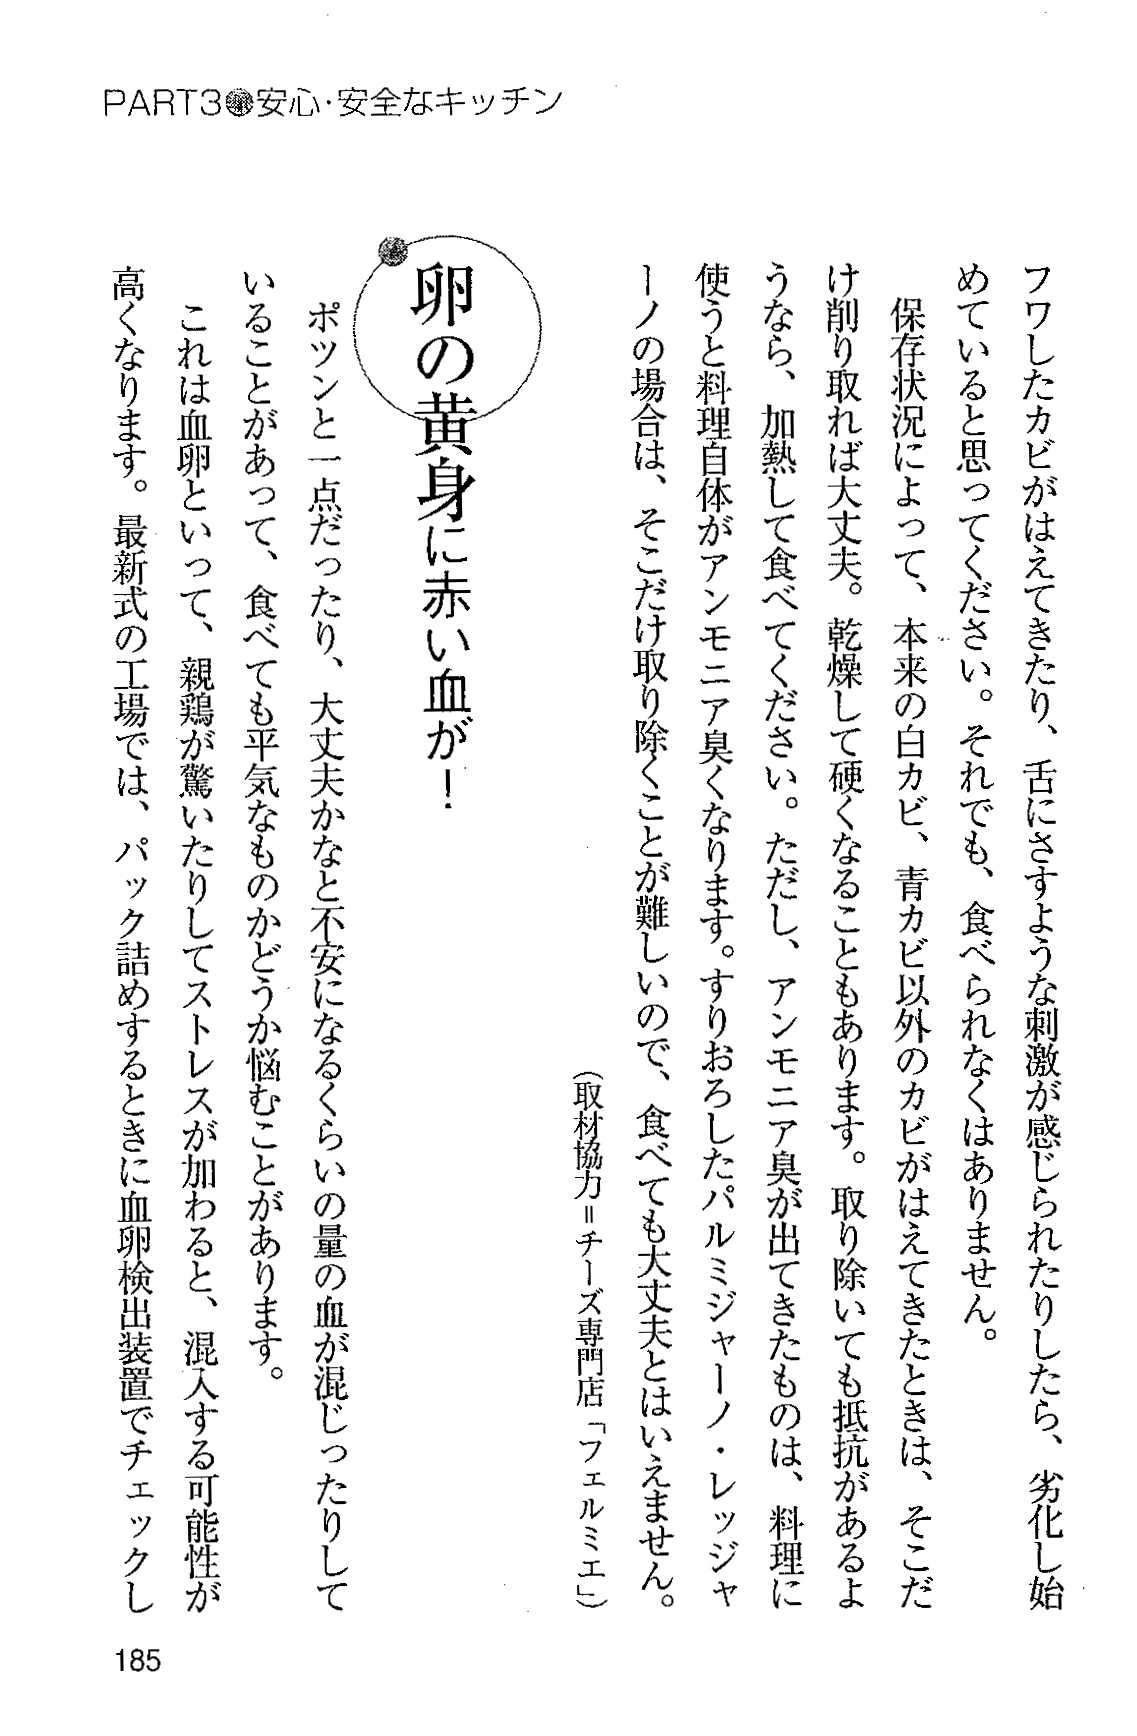 PART3●安心・安全なキッチン
フワしたカビがはえてきたり、舌にさすような刺激が感じられたりしたら、劣化し始
めていると思ってください。それでも、食べられなくはありません。
保存状況によって、本来の白カビ、青カビ以外のカビがはえてきたときは、そこだ
け削り取れば大丈夫。乾燥して硬くなることもあります。取り除いても抵抗があるよ
うなら、加熱して食べてください。ただし、アンモニア臭が出てきたものは、料理に
使うと料理自体がアンモニア臭くなります。すりおろしたパルミジャーノ・レッジャ
ーノの場合は、そこだけ取り除くことが難しいので、食べても大丈夫とはいえません。
（取材協力＝チーズ専門店「フェルミエ」）
卵の黄身に赤い血が！
ポツンと一点だったり、大丈夫かなと不安になるくらいの量の血が混じったりして
いることがあって、食べても平気なものかどうか悩むことがあります。
これは血卵といって、親鶏が驚いたりしてストレスが加わると、混入する可能性が
高くなります。最新式の工場では、パック詰めするときに血卵検出装置でチェックし
185